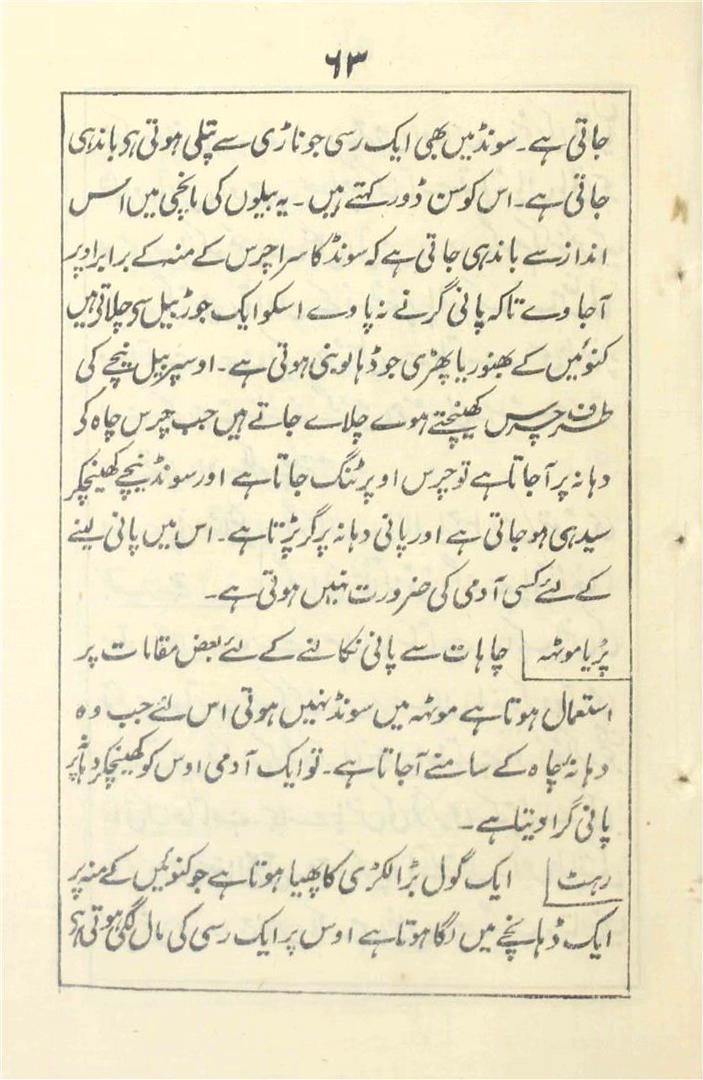 ۶۳
جاتی ہے۔ سونڈ میں بھی ایک رسی جو ناڑی سے پتلی ہوتی ہی باندہی
جاتی ہے۔ اس کو سن ڈور کہتے ہیں۔ یہ بیلوں کی مانچی میں اس
انداز سے باندہی جاتی ہے کہ سونڈ کا سرا چرس کے منہ کے برابر اوپر
آجاوے تاکہ پانی گرنے نہ پاوے اسکو ایک جوڑ بیل سی چلاتی ہیں
کنوئیں کے بھنور یا پھڑی جو ڈہالو بنی ہوتی ہے۔ اوسپر بیل نیچے کی
طرف چرس کھینچتے ہوے چلاے جاتے ہیں جب چرس چاہ کی
دہانہ پر آجاتا ہے تو چرس اوپر ٹنگ جاتا ہے اور سونڈ نیچے کھینچکر
سیدہی ہو جاتی ہے اور پانی دہانہ پر گر پڑتا ہے۔ اس میں پانی لینے
کے لئے کسی آدمی کی ضرورت نہیں ہوتی ہے۔
پُر یا موٹھہ چاہات سے پانی نکالنے کے لئے بعض مقامات پر
استعمال ہوتا ہے موٹھہ میں سونڈ نہیں ہوتی اس لئے جب وہ
دہانۂ چاہ کے سامنے آجاتا ہے۔ تو ایک آدمی اوس کو کھینچکر دہانہ پر
پانی گرا دیتا ہے۔
رہٹ ایک گول بڑا لکڑی کا پھیا ہوتا ہے جو کنوئیں کے منہ پر
ایک ڈہانچے میں لگا ہوتا ہے اوس پر ایک رسی کی مال لگی ہوتی ہی